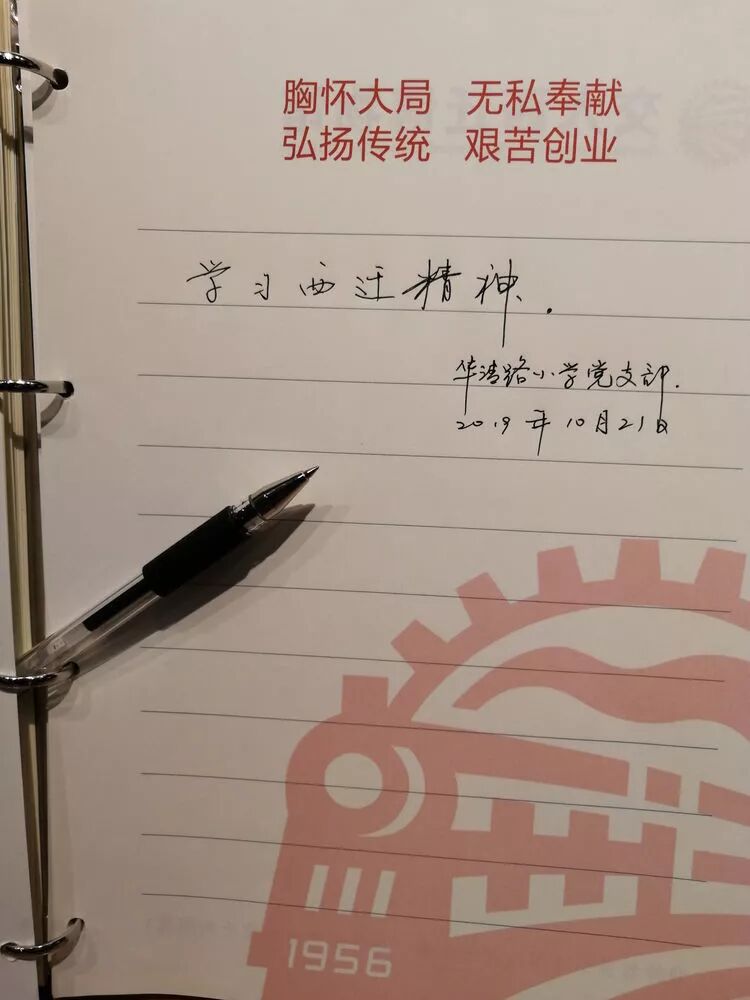 胸怀大局 无私奉献
弘扬传统 艰苦创业
学习西迁精神.
华清路小学党支部.
2019年10月21日
1956